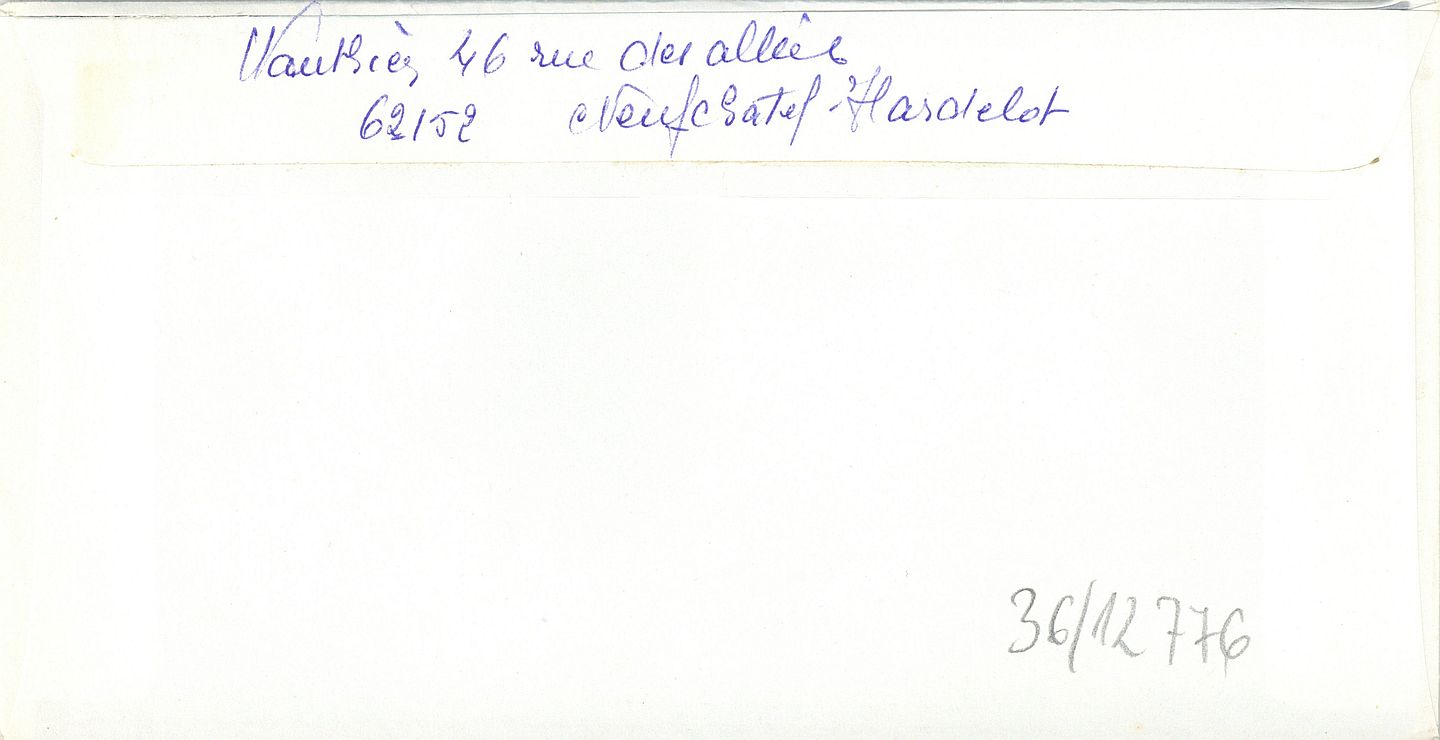 Vauthier, 46 rue des alliés
62152 Neufchatel-Hardelot
36/12 776